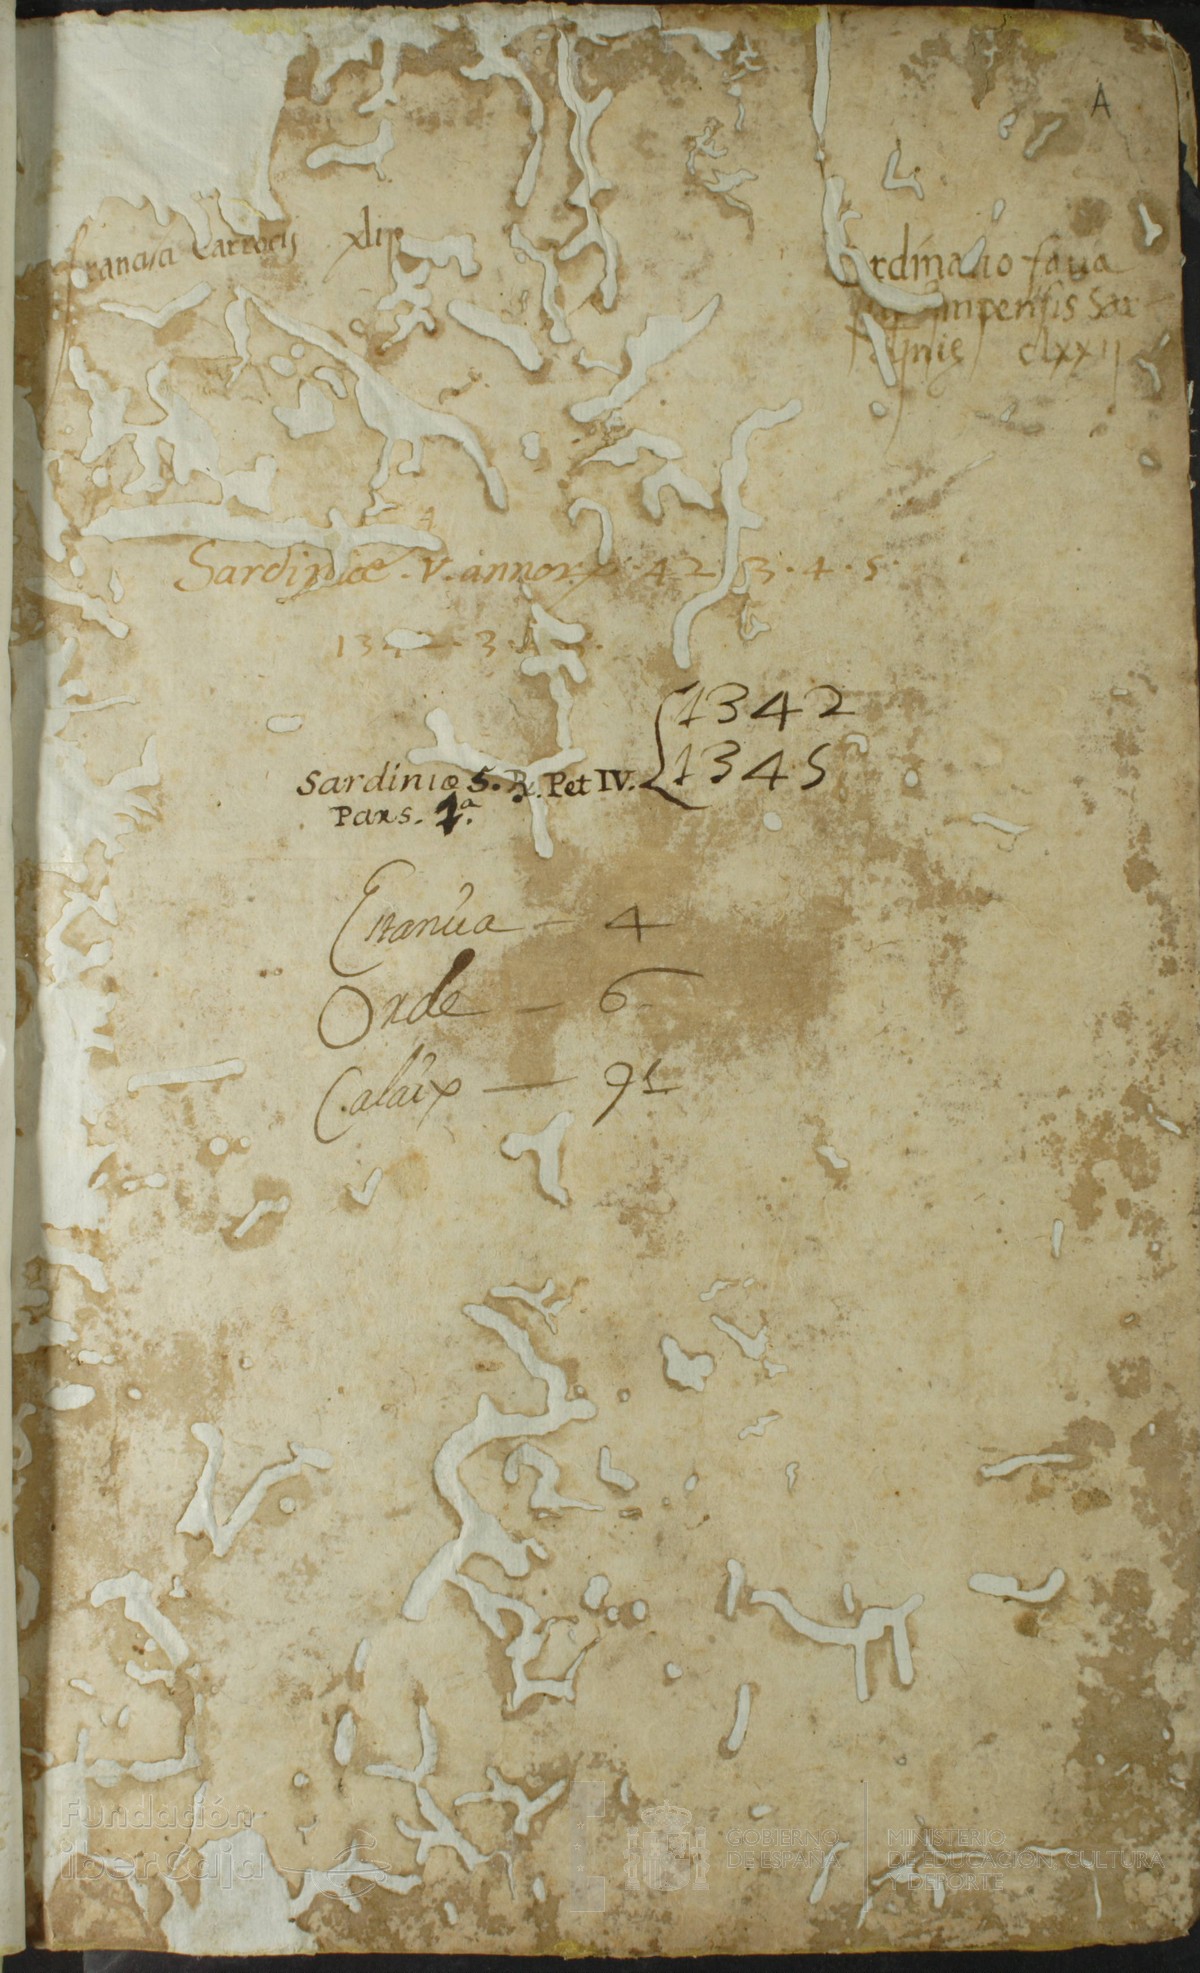 A
francisci Carrocij xliiȷ
rdinatio faua
impensis Sar
dinie clxxij
Sardiniæ . V . annor . 42 . 3 . 4 . 5 .
1342 . 3 . 4 . 5 .
Sardiniæ 5. Rx. Pet IV. { 1342
1345
Pars. 1ª.
Estanũa — 4
Orde — 6
Calaix — 91
Fundación
iberCaja
GOBIERNO
DE ESPAÑA
MINISTERIO
DE EDUCACIÓN, CULTURA
Y DEPORTE